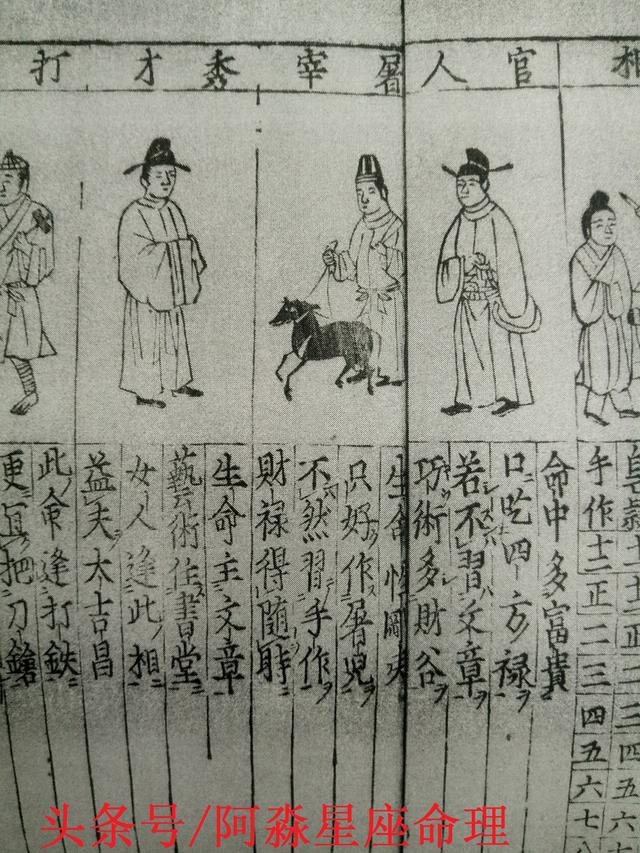 相
官人
屠宰
秀才
打
手作 十二 正 二 三 四 五 六 七 八
命中多富貴
口吃四方禄
若不習文章
巧術多財谷
生
只好作屠兒
不然習手作
財禄得隨時
生命主文章
藝術住書堂
女人逢此相
益夫大吉昌
此命逢打鉄
更宜把刀鎗
头条号/阿淼星座命理